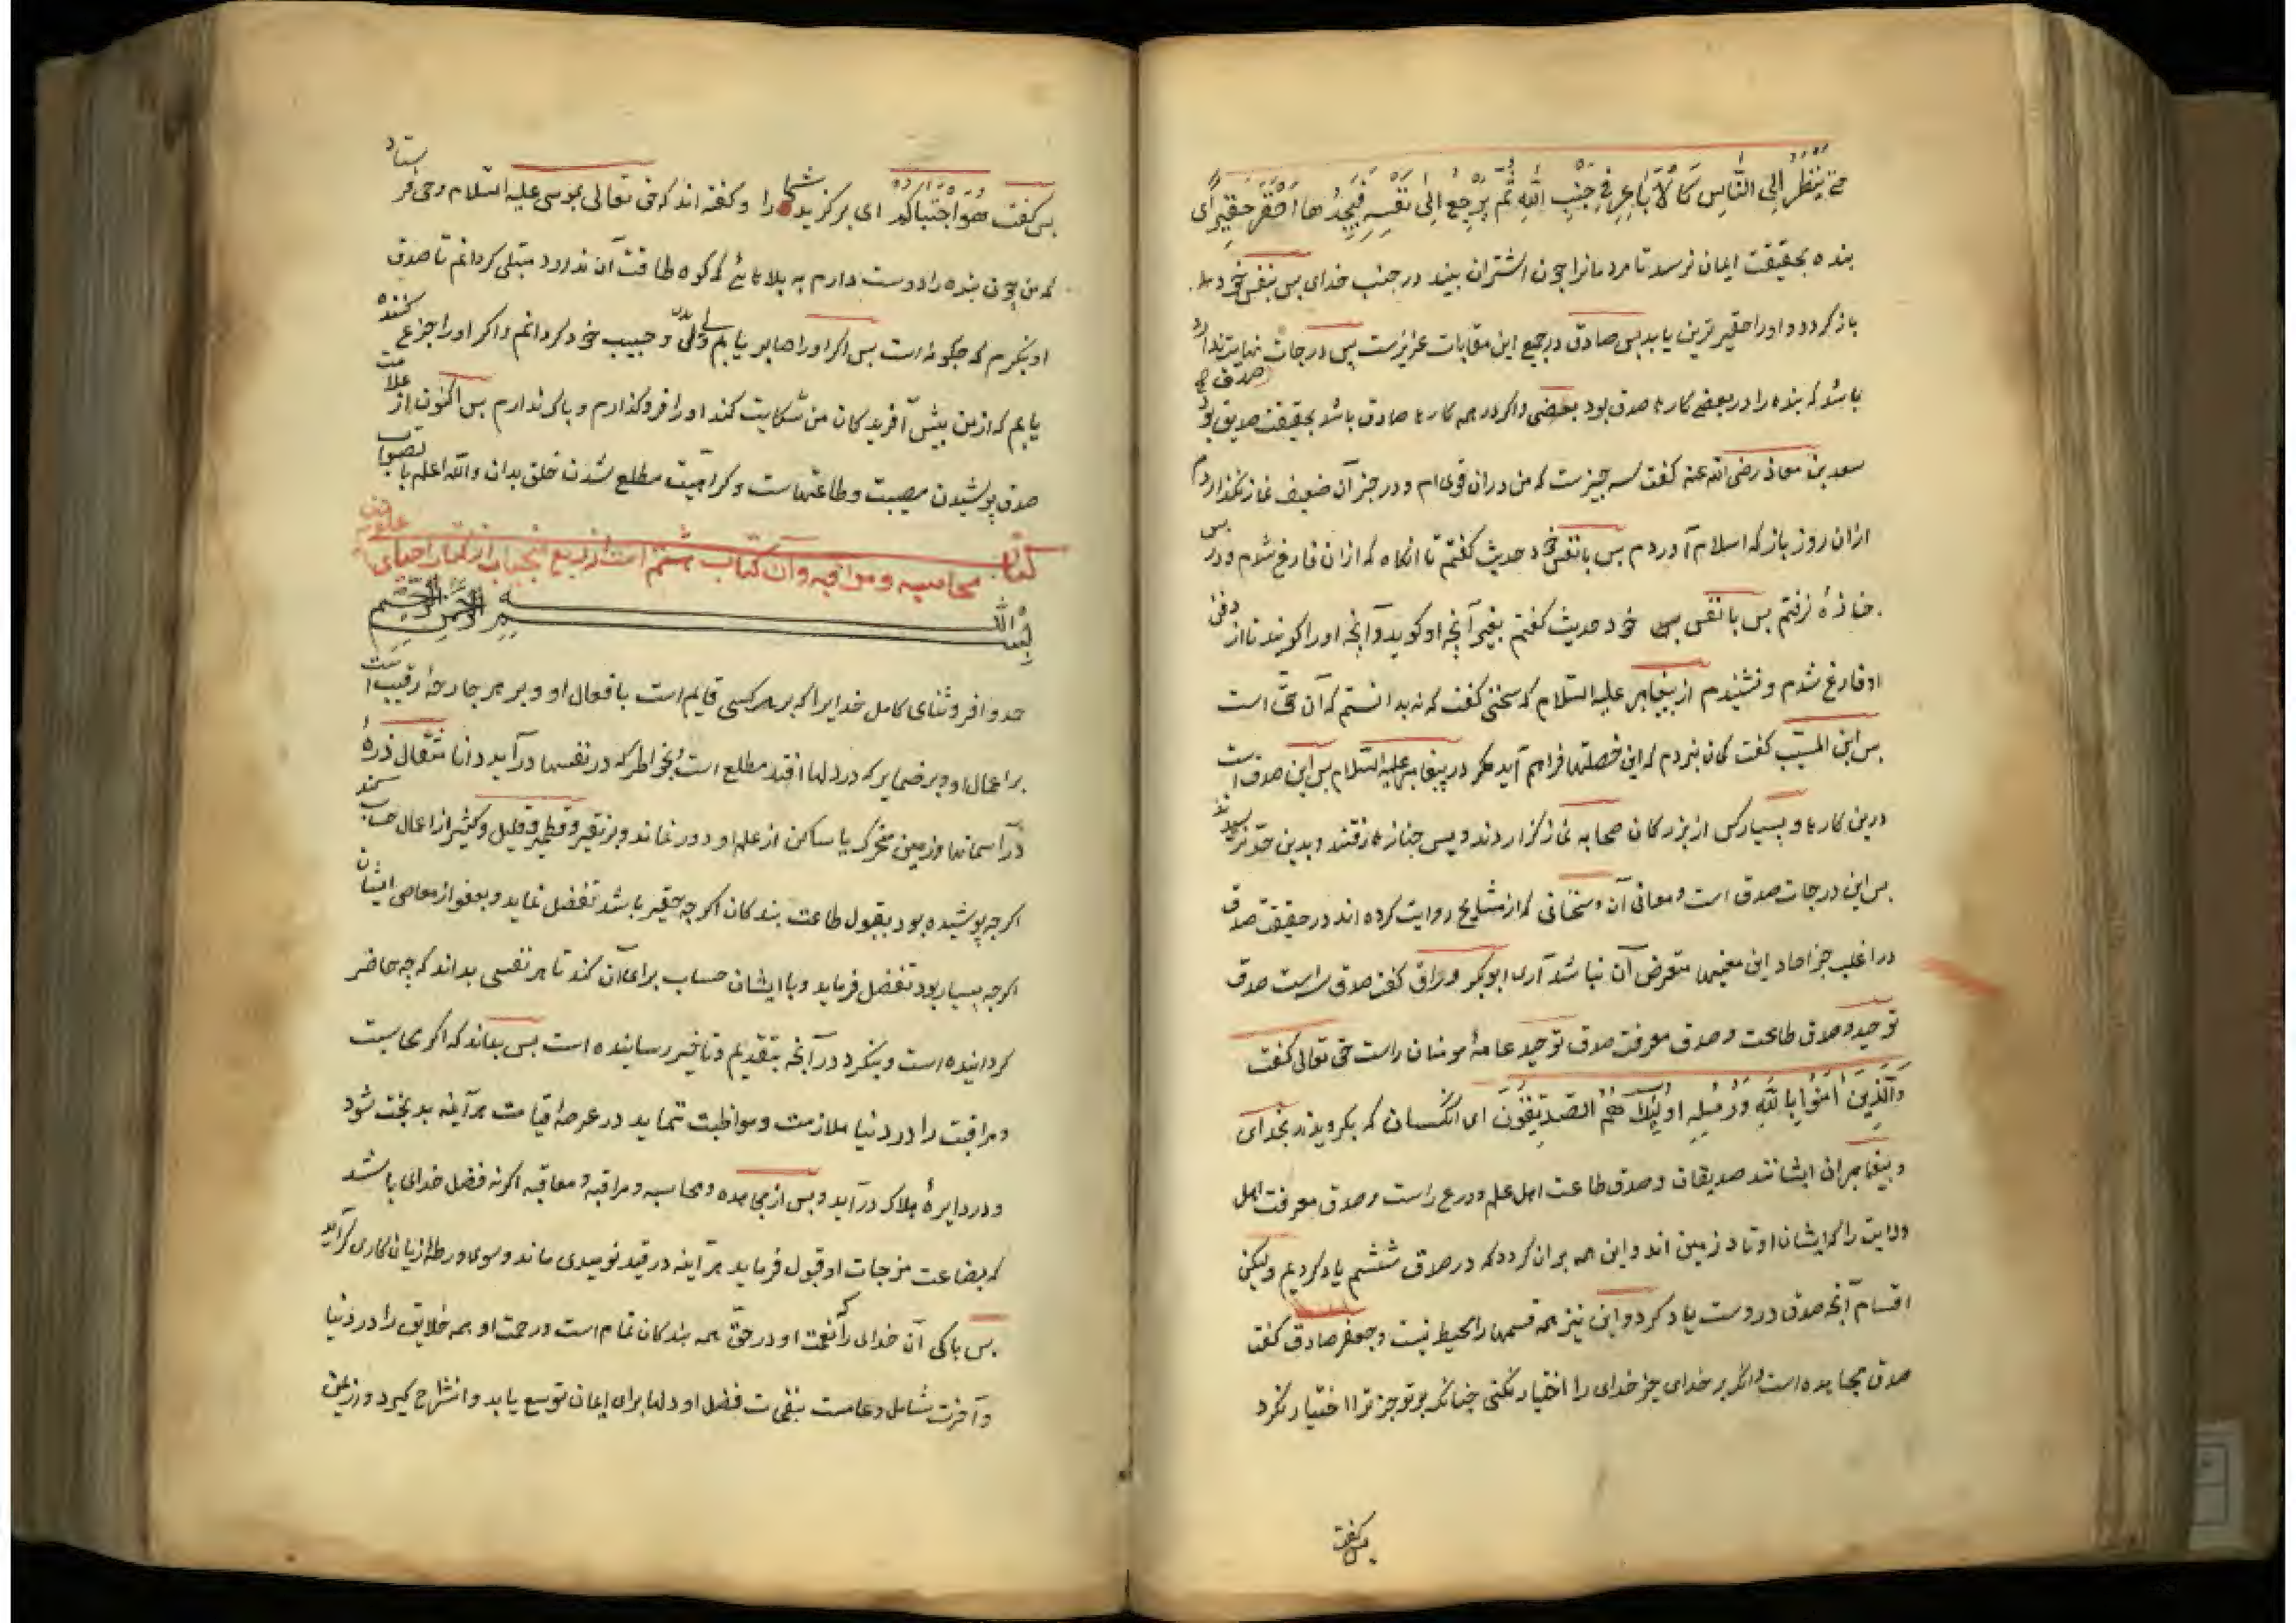 حتی ینظر الی النّاس کالاباعر فی جنب الله ثمّ یرجع الی نفسه فیجدها احقر حقیر ای
بنده بحقیقت ایمان نرسد تا مردمانرا چون اشتران بیند در جنب خدای بس بنفس خود
باز گردد و او را حقیر ترین یابد بس صادق در جمیع این مقامات عزیزست بس درجات صدق نهایت ندارد
باشد که بنده را در بعضی کارها صدق بود بعضی و اگر در همه کارها صادق باشد بحقیقت صدیق بود
سعد بن معاذ رضی الله عنه کفت سه چیزست که من دران قوی ام و در جز آن ضعیف نماز نکذاردم
ازان روز باز که اسلام آوردم بس با نفس خود حدیث کفتم تا انکاه که ازان فارغ شدم و در بس
جنازهٔ نرفتم بس با نفس خود حدیث کفتم بغیر آنچه او کوید و آنچه او را کویند تا از دفن
او فارغ شدم و نشنیدم از پیغامبر علیه السّلام که سخنی کفت که نه بدانستم که آن حق است
بس ابن المسیّب کفت کمان نبردم که این خصلتها فراهم آید مکر در پیغامبر علیه السّلام بس این صدق است
درین کارها و بسیار کس از بزرکان صحابه نماز کزاردند و پس جنازها رفتند و بدین حدّ نرسیدند
بس این درجات صدق است و معانی آن و سخنانی که از مشایخ روایت کرده اند در حقیقت صدق
در اغلب جز احاد این معنیها متعرض آن نباشد آری ابوبکر وراق کفت صدق سه است صدق
توحید و صدق طاعت و صدق معرفت صدق توحید عامهٔ مومنان راست حق تعالی کفت
والّذین امنوا بالله ورسله اولئک هم الصّدیقون ای آنکسان که بکرویدند بخدای
و بیغامبران ایشانند صدیقان و صدق طاعت اهل علم و ورع راست و صدق معرفت اهل
ولایت را که ایشان اوتاد زمین اند و این همه بران کردد که در صدق ششم یاد کردیم ولیکن
اقسام آنچه صدق دروست یاد کرد و این نیز همه قسمها را محیط نیست و جعفر صادق کفت
صدق مجاهده است و انکه بر خدای جز خدای را اختیار نکنی چنانکه بر تو جز ترا اختیار نکرد
بس کفت
بس کفت هو اجتباکم ای برکزید شما را و کفته اند که حق تعالی بموسی علیه السّلام وحی فرستاد
که من چون بنده را دوست دارم به بلاهائی که کوه طاقت آن ندارد مبتلی کردانم تا صدق
او بنکرم که چکونه است بس اکر او را صابر یابم ولی و حبیب خود کردانم و اکر او را جزع کننده
یابم که از من پیش آفریدکان من شکایت کند او را فروکذارم و باک ندارم بس اکنون از علامت
صدق پوشیدن مصیبت و طاعتهاست و کراهیت مطلع شدن خلق بدان والله اعلم بالصواب
کتاب محاسبه و مراقبه و آن کتاب هشتم است از ربع منجیات از کتاب احیای علوم
بسم الله الرحمن الرحیم
حمد وافر و ثنای کامل خدایرا که بر هر کسی قایم است بافعال او و بر هر جارحهٔ رقیب است
بر اعمال او و بر ضمایر که در دلها افتد مطلع است بخواطر که در نفسها در آید دانا مثقال ذرهٔ
در آسمانها و زمین متحرک یا ساکن از علم او دور نماند و بر نقیر و قطمیر و قلیل و کثیر از اعمال حساب کند
اکرچه پوشیده بود بقبول طاعت بندکان اکرچه حقیر باشد تفضل نماید و بعفو از معاصی ایشان
اکرچه بسیار بود تفضل فرماید و با ایشان حساب برای آن کند تا هر نفسی بداند که چه حاضر
کردانیده است و بنکرد در آنچه بتقدیم و تاخیر رسانیده است بس بداند که اکر محاسبت
و مراقبت را در دنیا ملازمت و مواظبت ننماید در عرصهٔ قیامت هرآینه بدبخت شود
و در دایرهٔ هلاک در آید و بس از مجاهده و محاسبه و مراقبه و معاقبه اکر نه فضل خدای باشد
که بضاعت مزجات او قبول فرماید هرآینه در قید نومیدی ماند و سوی ورطهٔ زیان کاری کراید
بس باکی آن خدای را که نعمت او در حقّ همه بندکان تمام است و رحمت او همه خلایق را در دنیا
و آخرت شامل و عامست بنفحات فضل او دلها برای ایمان توسع یابد و انشراح کیرد و